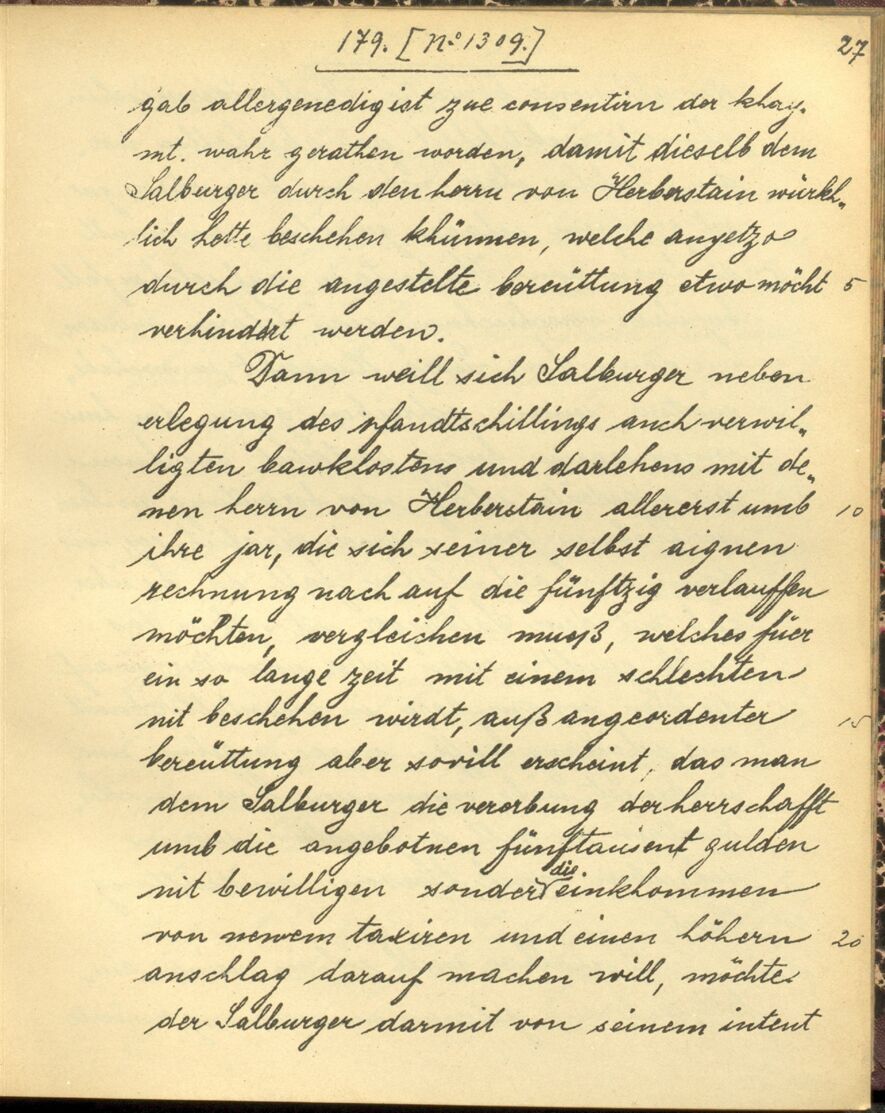 179. [No 1309.]
27
gab allergenedigist zue consentirn der khay.
mt. wahr gerathen worden, damit dieselb dem
Salburger durch den herrn von Herberstain würkh„
lich hette beschehen khünnen, welche anyetzo
durch die angestelte bereüttung etwo möcht 5
verhindert werden.
Dann weill sich Salburger neben
erlegung des pfandtschillings auch verwil„
ligten bawkhostens und darlehens mit de„
nen herrn von Herberstain allererst umb 10
ihre jar, die sich seiner selbst aignen
rechnung nach auf die fünftzig verlauffen
möchten, vergleichen mueß, welches füer
ein so lange zeit mit einem schlechten
nit beschehen wirdt, auß angeordenter 15
bereüttung aber sovill erscheint, das man
dem Salburger die vererbung der herrschafft
umb die angebotnen fünftausent gulden
nit bewilligen sonder die einkhommen
von newem taxiren und einen höhern 20
anschlag darauf machen will, möchte
der Salburger darmit von seinem intent